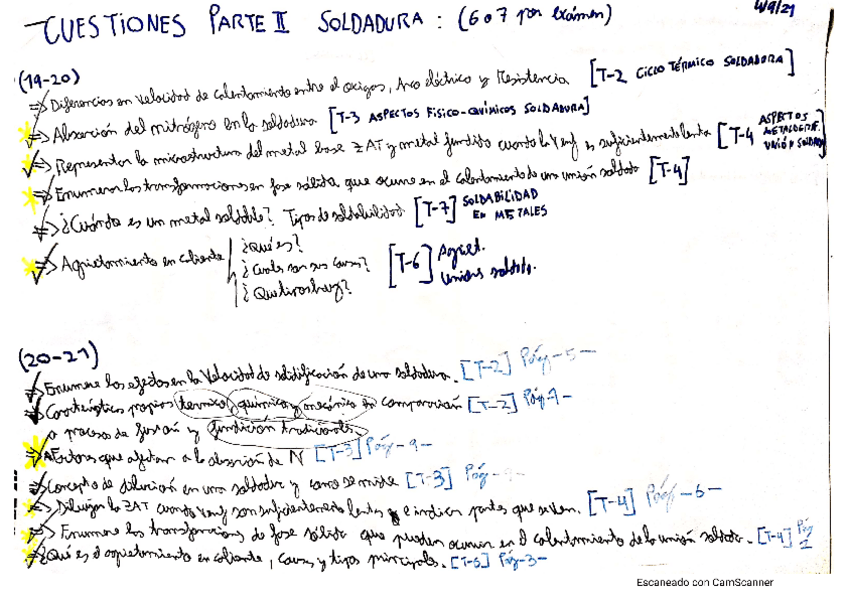 CUESTIONES PARTE II SOLDADURA: (6 o 7 por exámen)
4/9/21
(19-20)
⇒ Diferencias en velocidad de calentamiento entre el oxigas, Arco eléctrico y Resistencia [T-2 CICLO TÉRMICO SOLDADURA]
⇒ Absorción del nitrógeno en la soldadura [T-3 ASPECTOS FISICO-QUÍMICOS SOLDADURA]
⇒ Representar la microestructura del metal base ZAT y metal fundido cuando la Venf es suficientemente lenta [T-4 ASPECTOS METALÚRGR. UNIÓN SOLDADA]
⇒ Enumerar las transformaciones en fase sólida que ocurre en el calentamiento de una unión soldada [T-4]
⇒ ¿Cuándo es un metal soldable? Tipos de soldabilidad. [T-7] SOLDABILIDAD EN METALES
⇒ Agrietamiento en caliente
¿qué es?
¿Cuales son sus causas?
¿Que tipos hay?
[T-6] Agriet. unions soldada.
(20-21)
⇒ Enumere los efectos en la Velocidad de solidificación de una soldadura. [T-2] Pág-5-
⇒ Características propias termico, químico y mecánico en comparación [T-2] Pág-9-
a proceso de fusión y fundición tradicionales.
⇒ Factores que afectan a la absorción de N [T-3] Pág-9-
⇒ Concepto de dilución en una soldadura y como se mide [T-3] Pág
⇒ Dibujar la ZAT cuando Venf son suficientemente lentas e indicar partes que saben. [T-4] Pág-6-
⇒ Enumere las transformacions de fase sólida que pueden ocurrir en el calentamiento de la unión soldada. [T-4] Pág 1
⇒ ¿Qué es el agrietamiento en caliente, causas y tipos principales. [T-6] Pág-3-
Escaneado con CamScanner